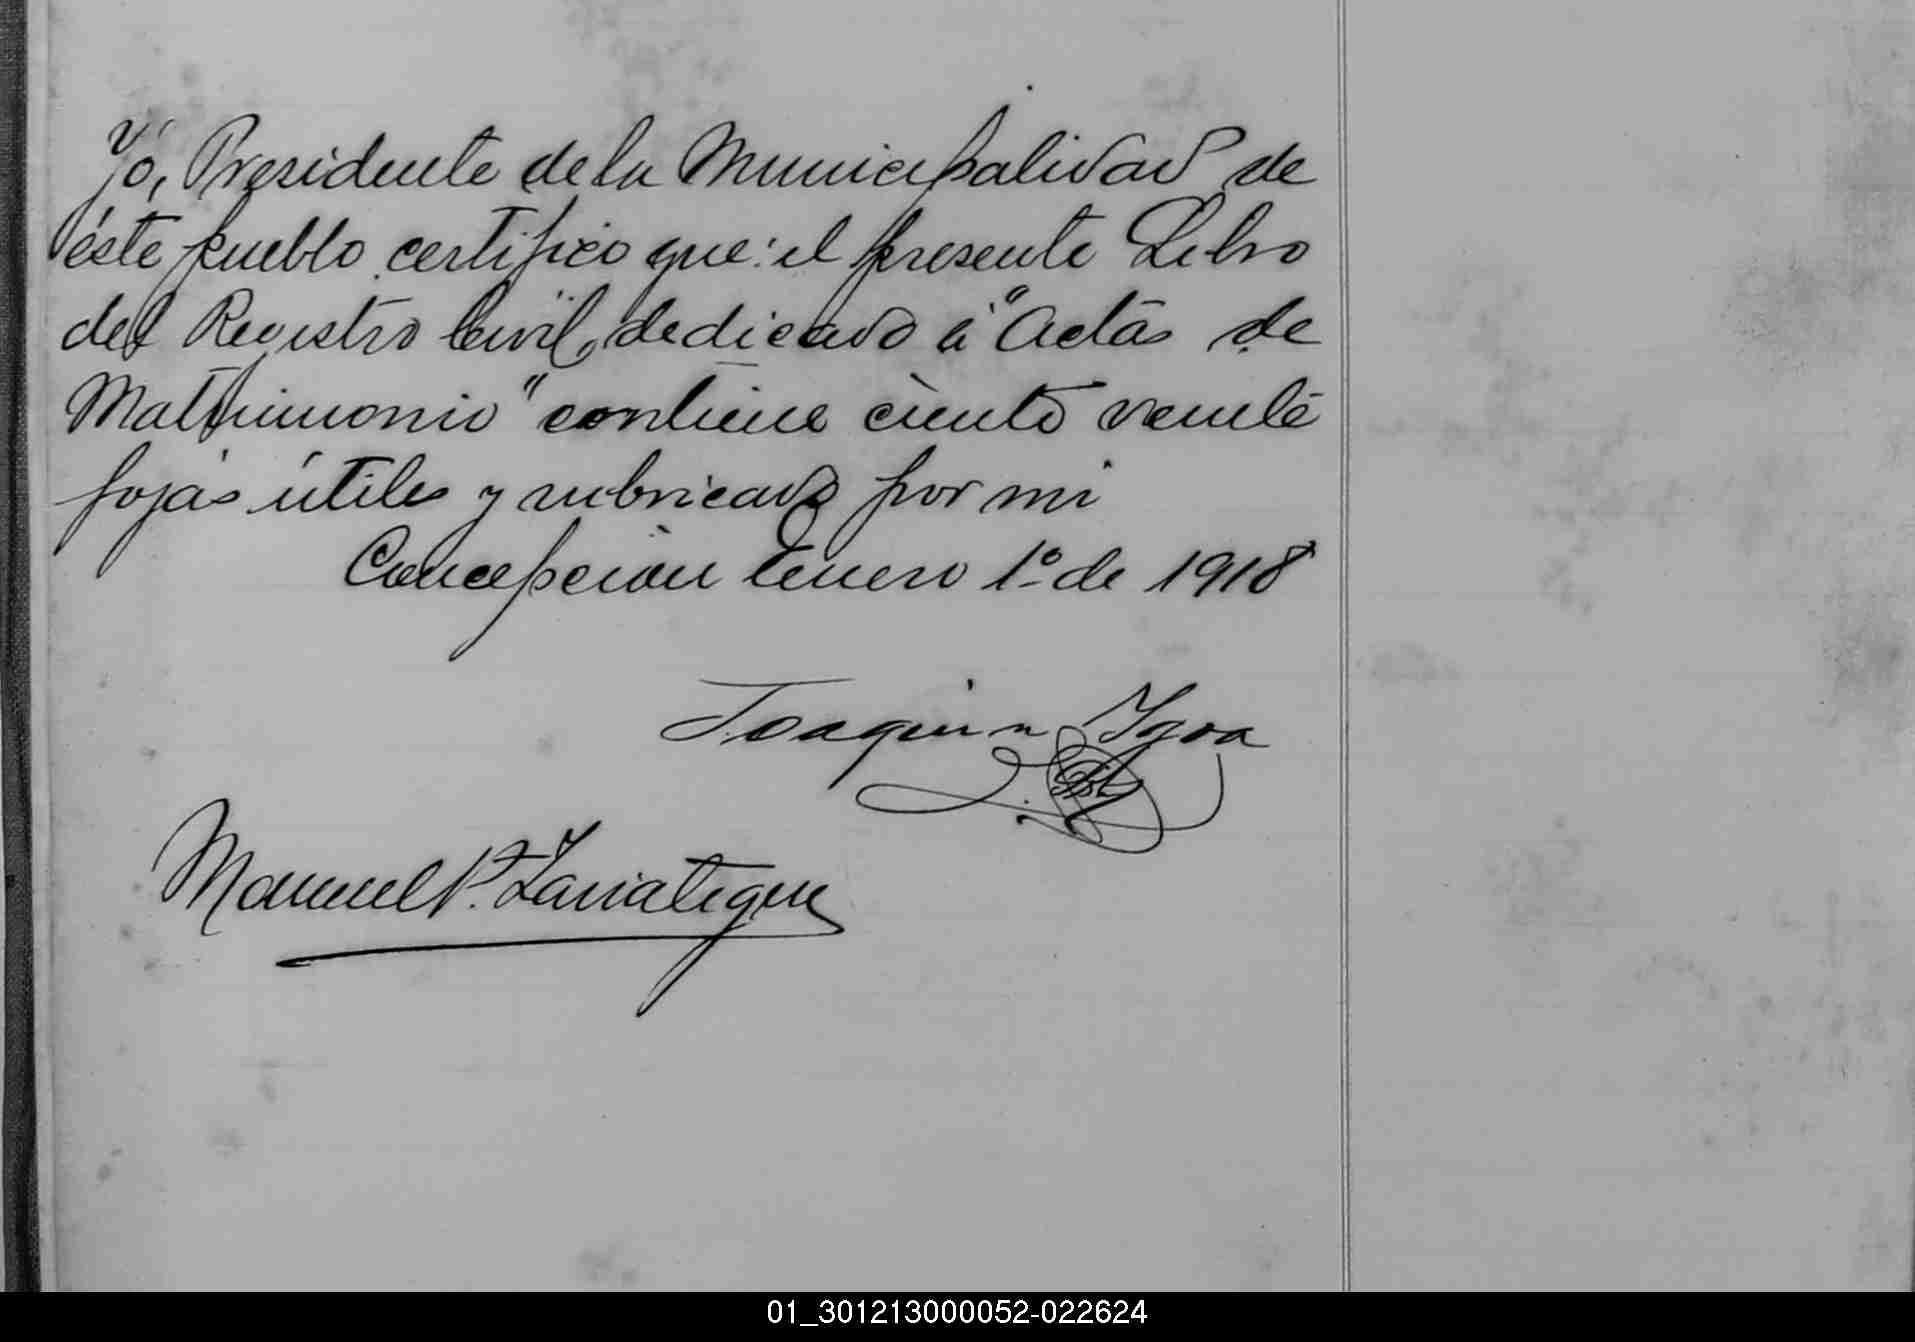 Yó, Presidente de la Municipalidad de
éste pueblo certifico que: el presente Libro
del Registro Civil, dedicado á "Actas de
Matrimonio" contiene ciento veinte
fojas útiles y rubricado por mi
Concepcion Enero 1º de 1918
Joaquin Ygoa
Manuel P.
01_301213000052-022624